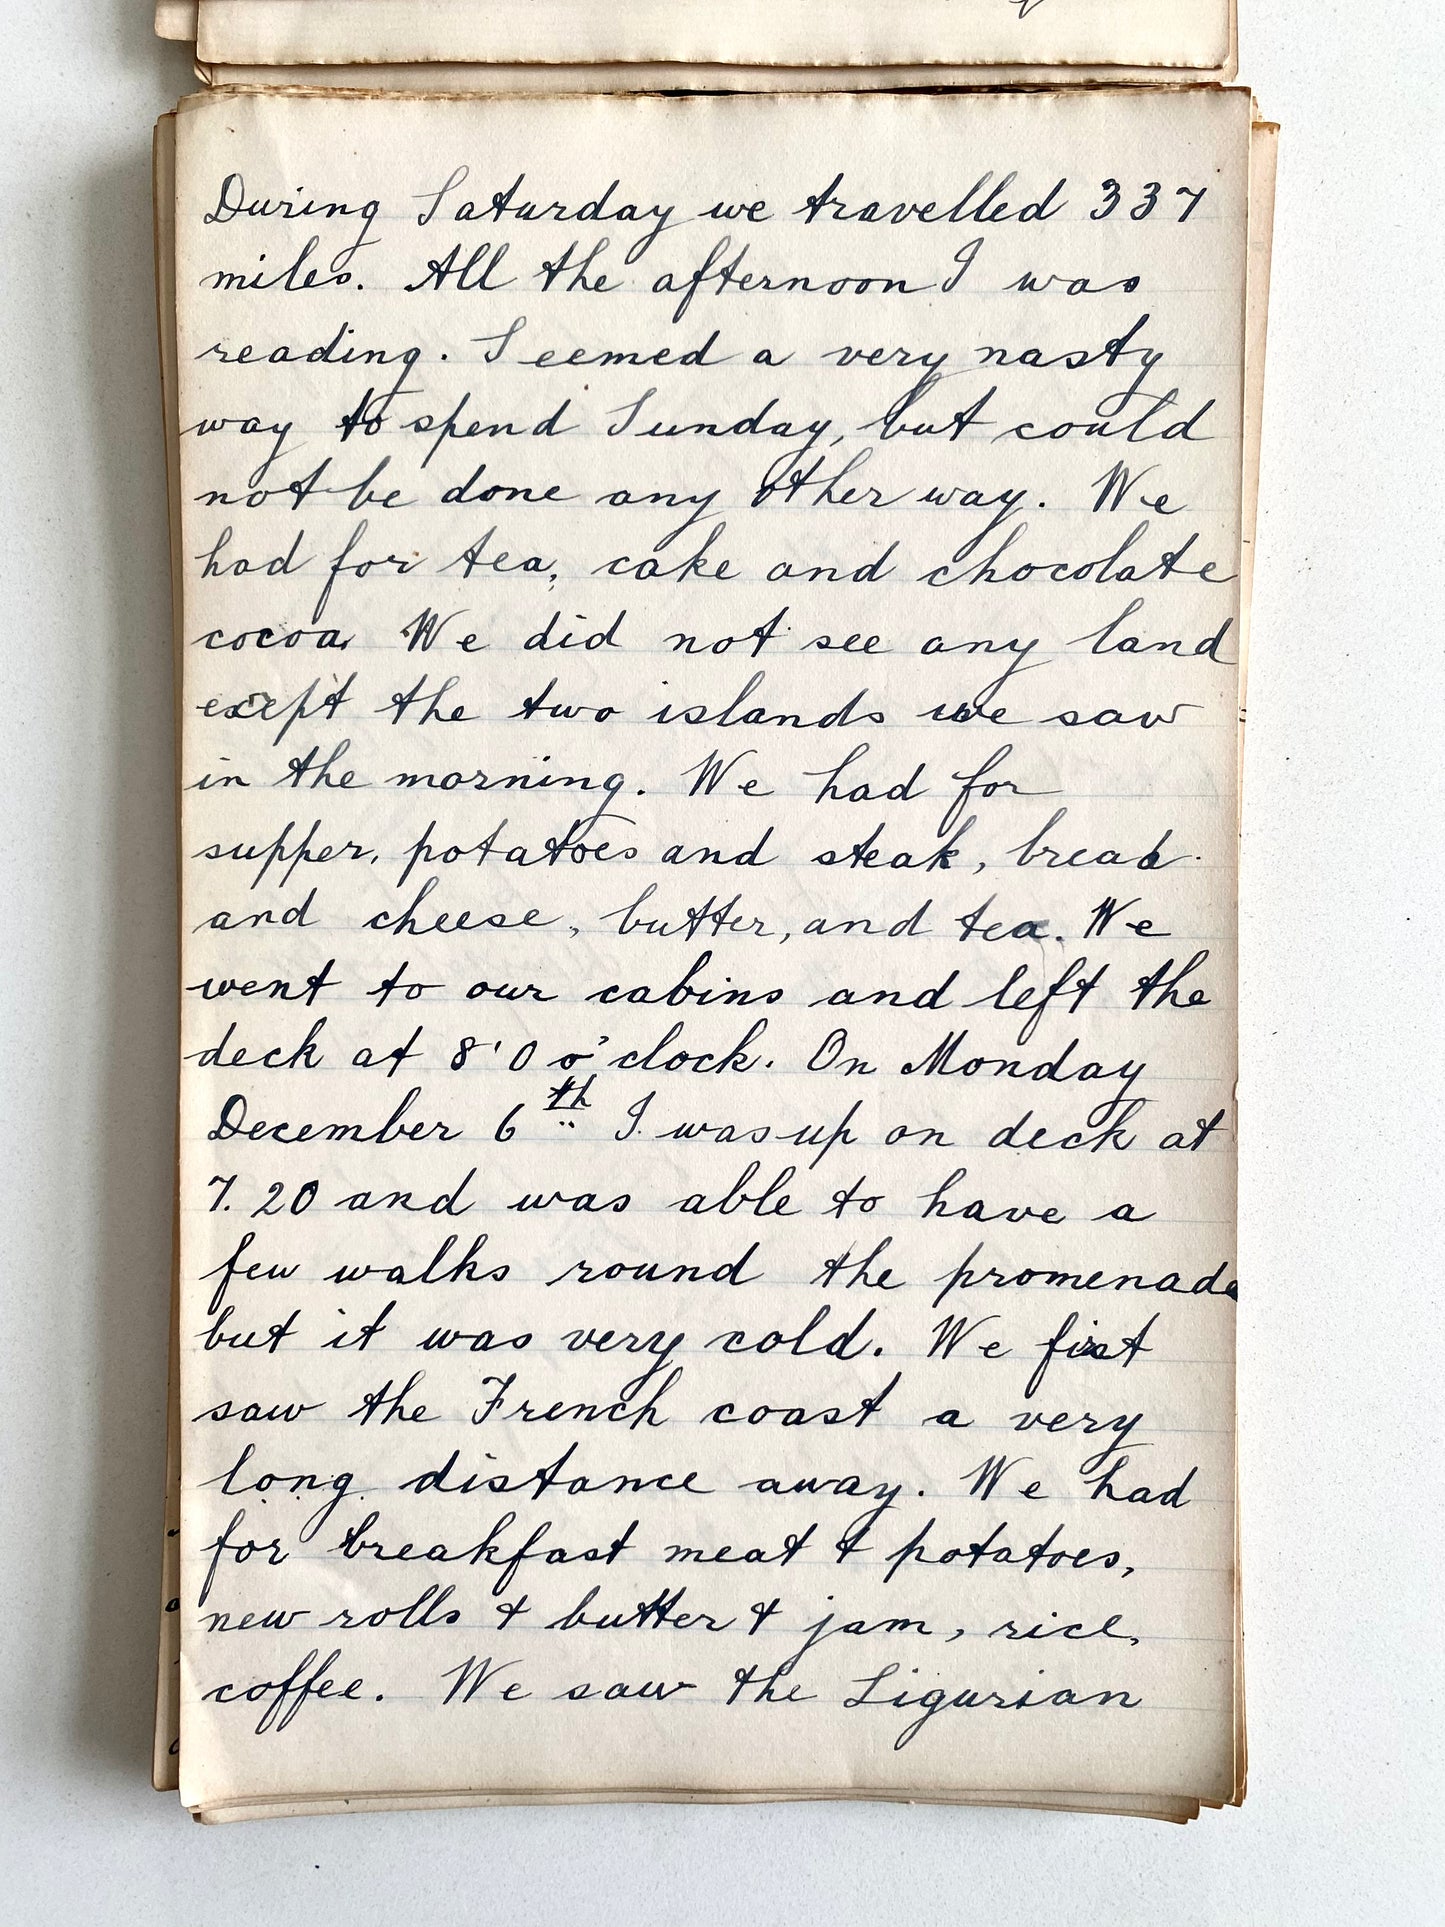 During Saturday we travelled 337
miles. All the afternoon I was
reading. Seemed a very nasty
way to spend Sunday, but could
not be done any other way. We
had for tea, cake and chocolate
cocoa. We did not see any land
exept the two islands we saw
in the morning. We had for
supper, potatoes and steak, bread
and cheese, butter, and tea. We
went to our cabins and left the
deck at 8'0 o'clock. On Monday
December 6th I was up on deck at
7.20 and was able to have a
few walks round the promenade
but it was very cold. We first
saw the French coast a very
long distance away. We had
for breakfast meat + potatoes,
new rolls + butter + jam, rice,
coffee. We saw the Ligurian